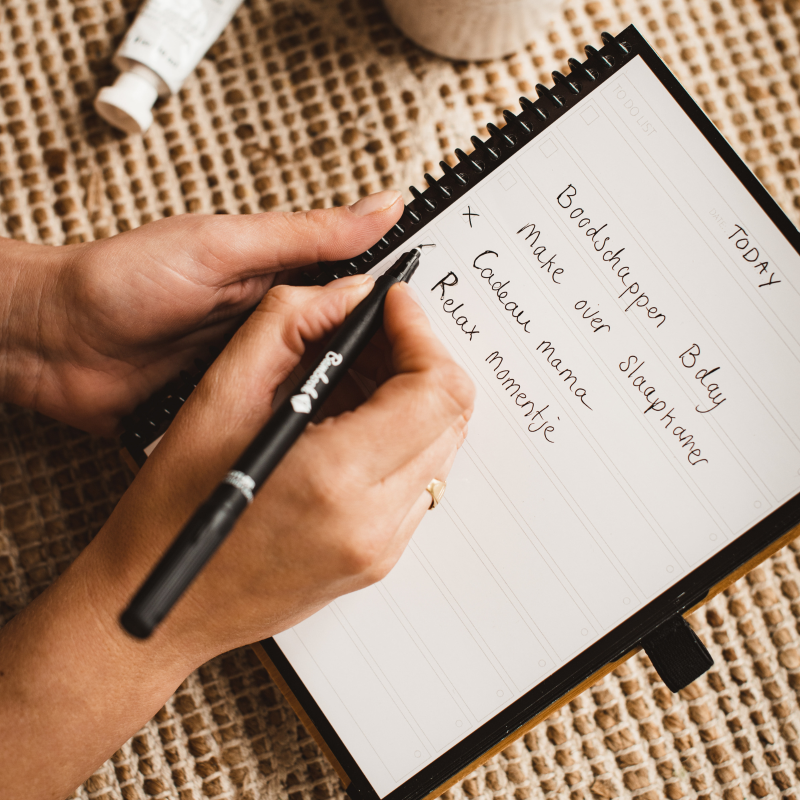 TO DO LIST
TODAY
Boodschappen Bday
Make over slaapkamer
x Cadeau mama
Relax momentje